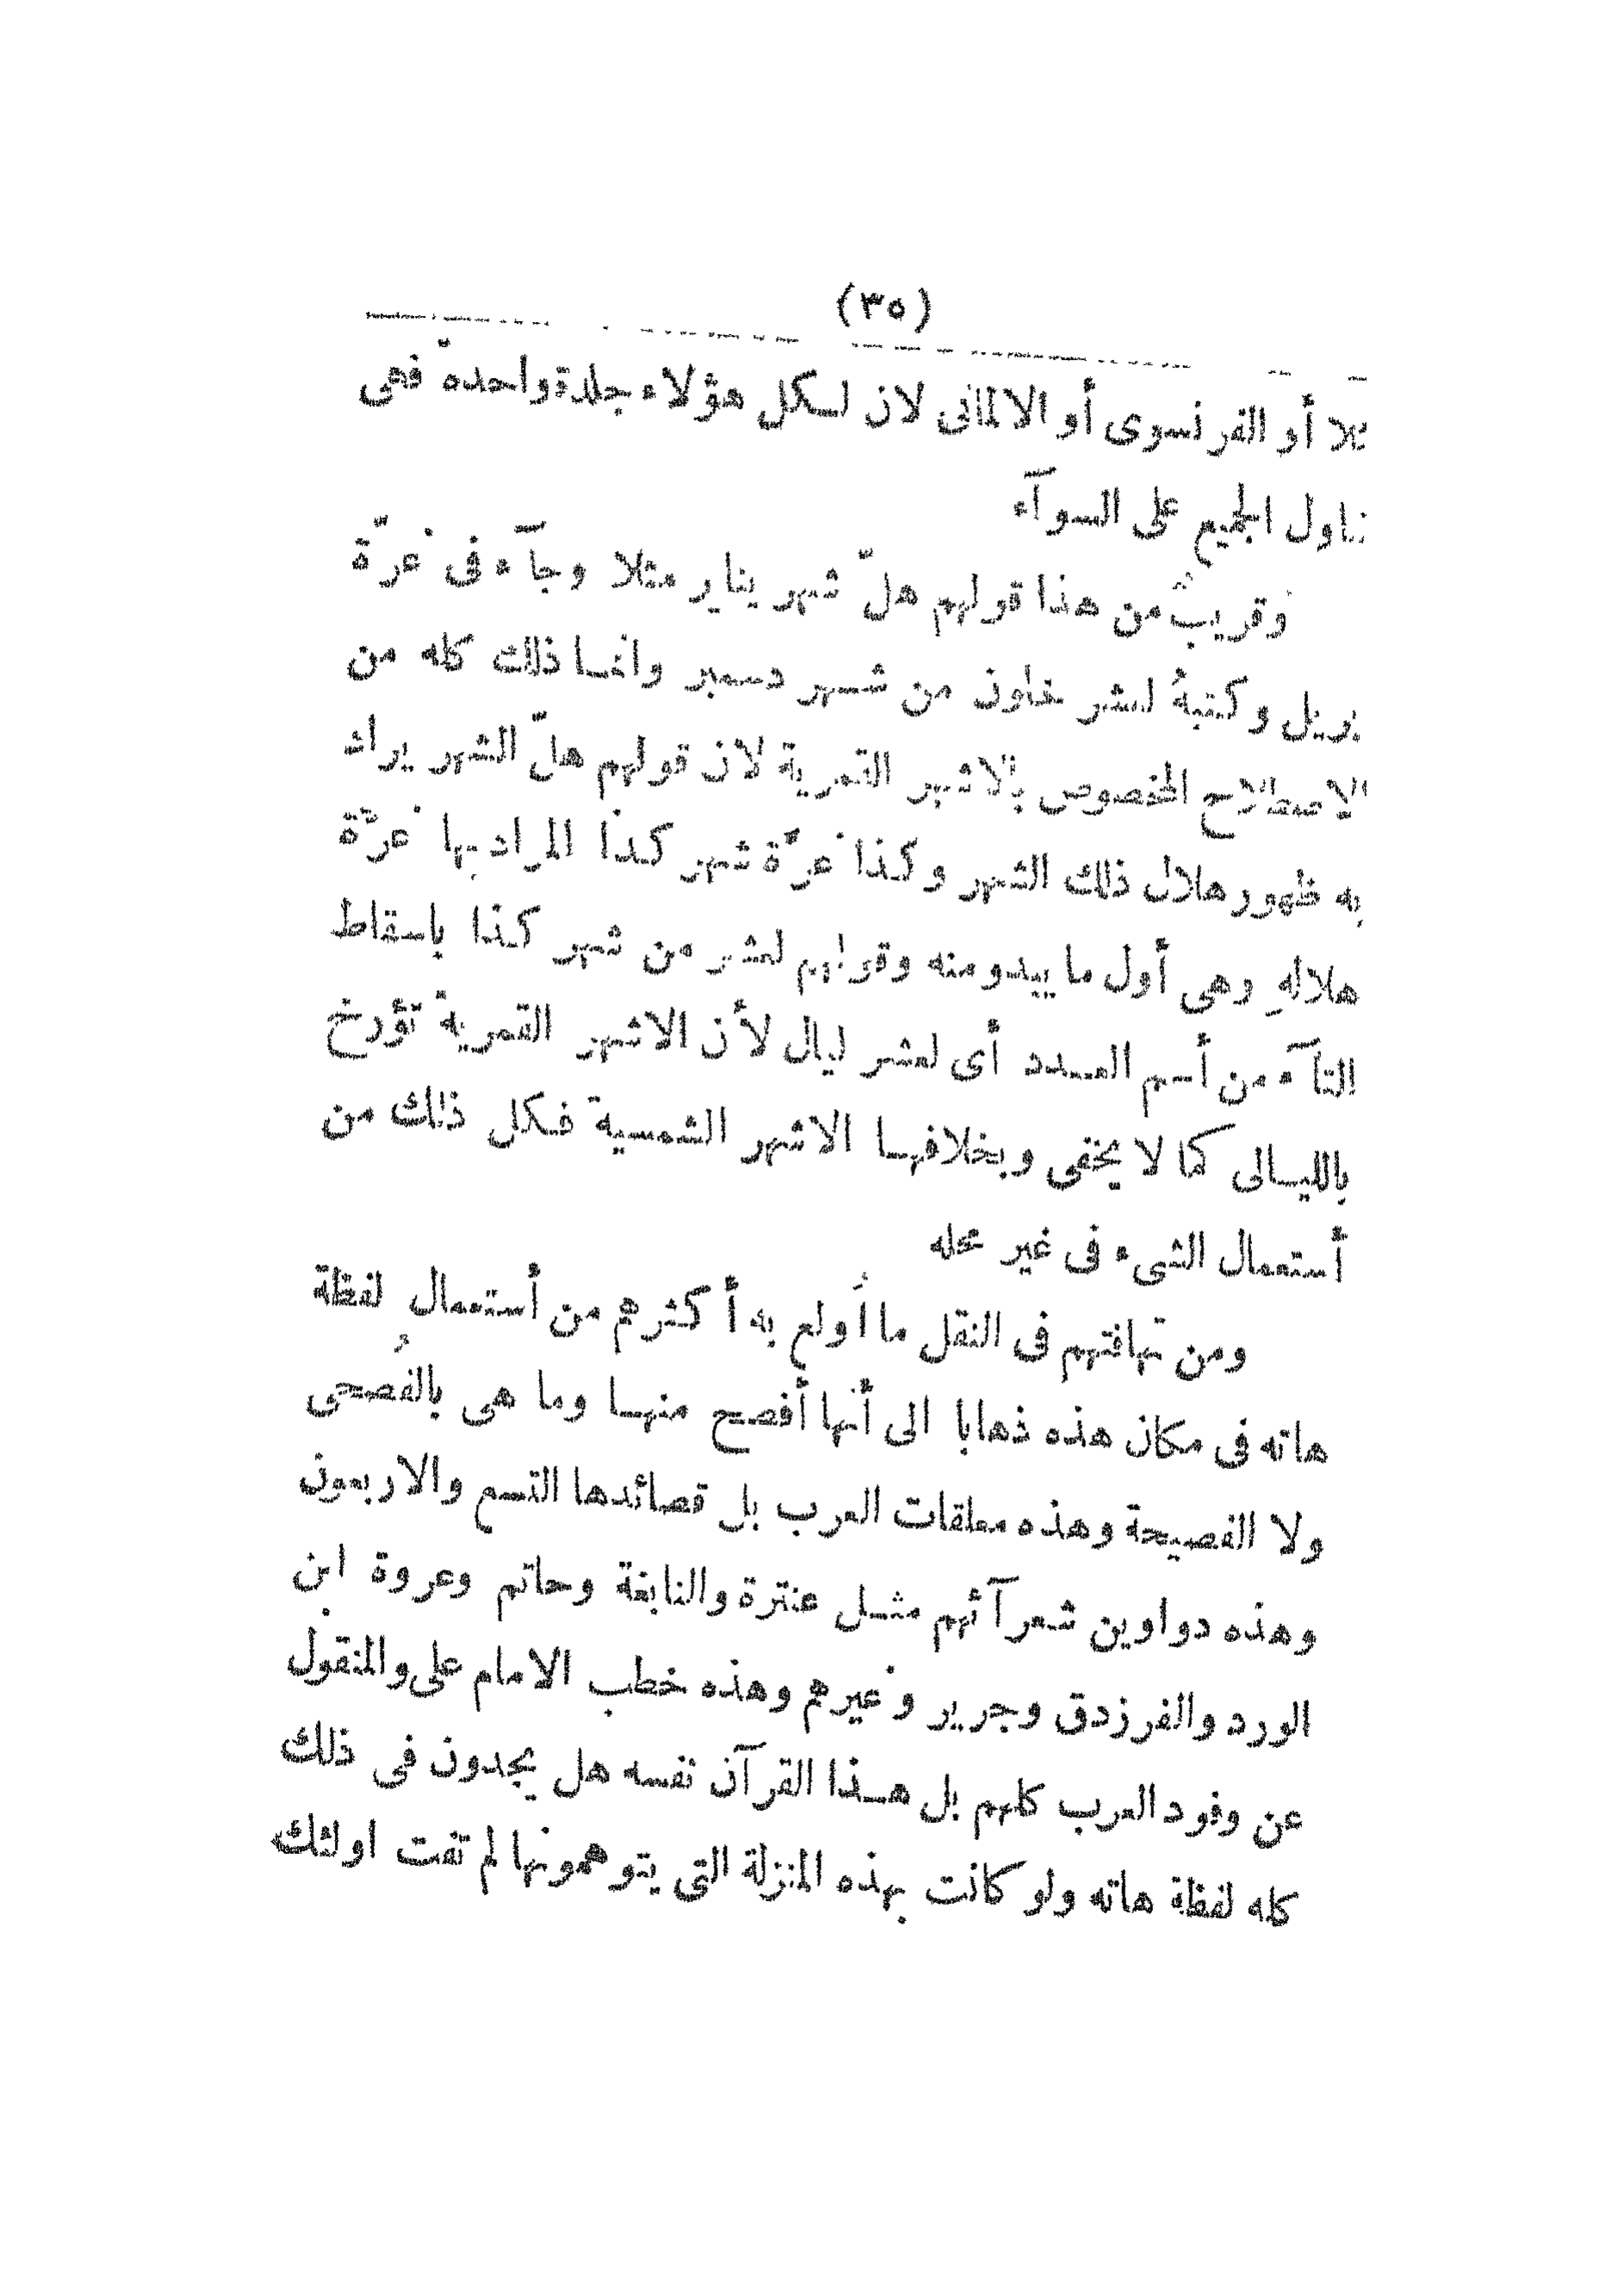 (٣٥)
أو الفرنسوى أو الالمانى لان لكل هؤلاء جلدة واحدة فهى
الجميع على السوآء
وقريبٌ من هذا قولهم هلّ شهر يناير مثلا وجآء فى غرّة
وكتبهُ لعشر خلون من شهر دسمبر وانما ذلك كله من
الاصطلاح المخصوص بالاشهر القمرية لان قولهم هلّ الشهر يراد
به ظهور هلال ذلك الشهر وكذا غرّة شهر كذا المراد بها غرّة
هلالهِ وهى أول ما يبدو منه وقولهم لعشر من شهر كذا باسقاط
التآء من أسم العدد أى لعشر ليال لأن الاشهر القمرية تؤرخ
بالليالى كما لا يخفى وبخلافها الاشهر الشمسية فكل ذلك من
أستعمال الشىء فى غير محله
ومن تهافتهم فى النقل ما أُولع به أكثرهم من أستعمال لفظة
هاته فى مكان هذه ذهابا الى أنها أفصح منها وما هى بالفُصحى
ولا الفصيحة وهذه معلقات العرب بل قصائدها التسع والاربعون
وهذه دواوين شعرآئهم مثل عنترة والنابغة وحاتم وعروة ابن
الورد والفرزدق وجرير وغيرهم وهذه خطب الامام على والمنقول
عن وفود العرب كلهم بل هذا القرآن نفسه هل يجدون فى ذلك
كله لفظة هاته ولو كانت بهذه المنزلة التى يتوهمونها لم تفت اولئك